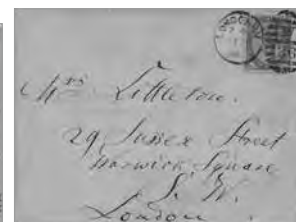 Mrs Littleton.
29 Sussex Street
Warwick Square
S. W.
London